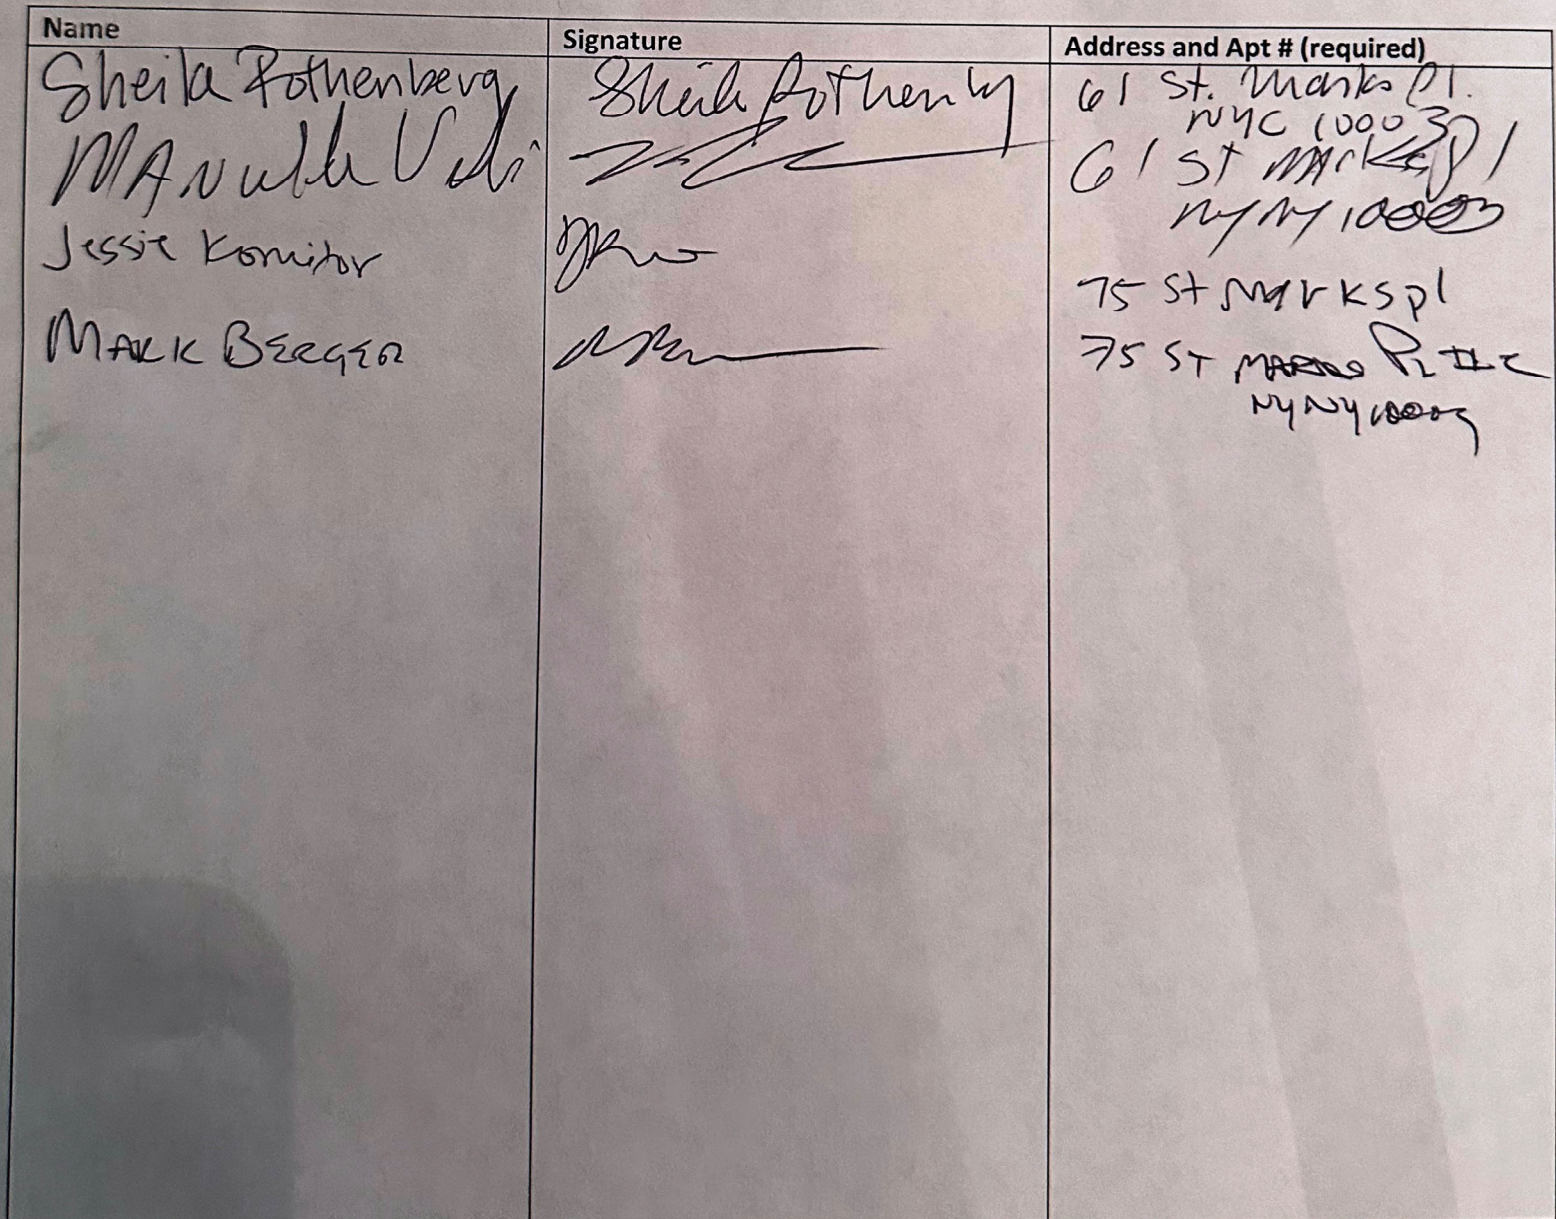 Name Signature Address and Apt # (required)
Sheila Rothenberg Sheila Rothenberg 61 St. Marks Pl.
NYC 10003
61 St Marks Pl
NY NY 10003
Jessie Komitor
75 St Marks pl
MARK BERGER 75 ST MARKS PL
NY NY 10003